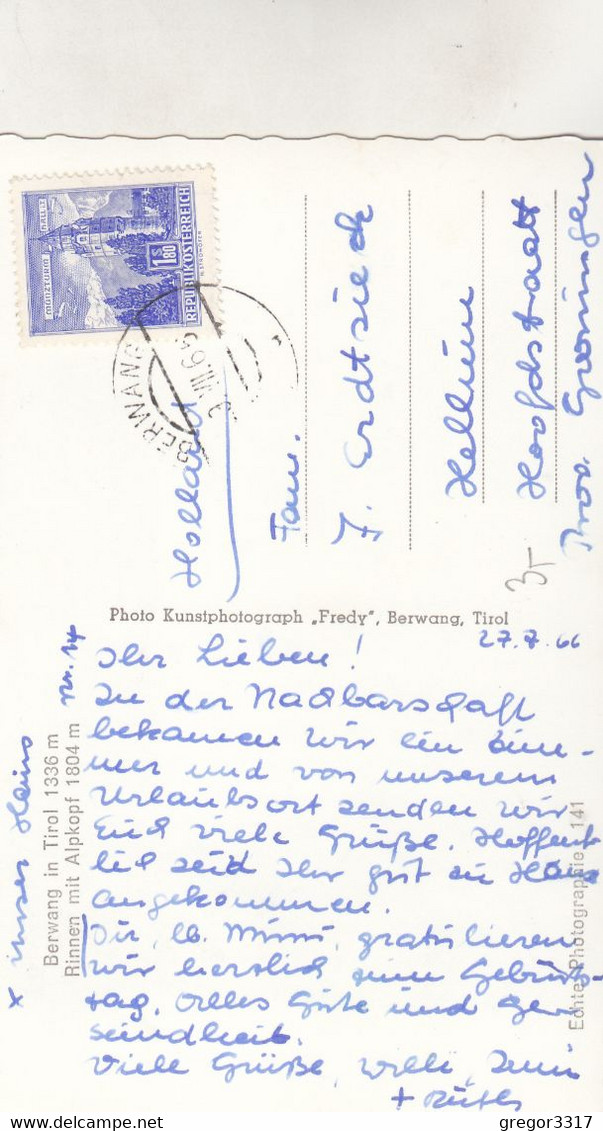 MÜNZTURM HALL I.T.
S 1.80
REPUBLIK ÖSTERREICH
BERWANG
Holland
Fam.
J. Erdtsieck
Hellum
Hoofdstraat
Prov. Groningen
3,-
Photo Kunstphotograph „Fredy", Berwang, Tirol
27.7.66
Ihr Lieben!
In der Nachbarschaft
bekamen wir ein Zim-
mer und von unserem
Urlaubsort senden wir
Euch viele Grüße. Hoffent-
lich seid Ihr gut zu Haus
angekommen.
Dir, lb. Mimi, gratulieren
wir herzlich zum Geburts-
tag. Alles Gute und Ge-
sundheit.
Viele Grüße, Willi,
+ Ruth
x unser Haus Nr. 14
Berwang in Tirol 1336 m
Rinnen mit Alpkopf 1804 m
Echte Photographie 141
gregor3317